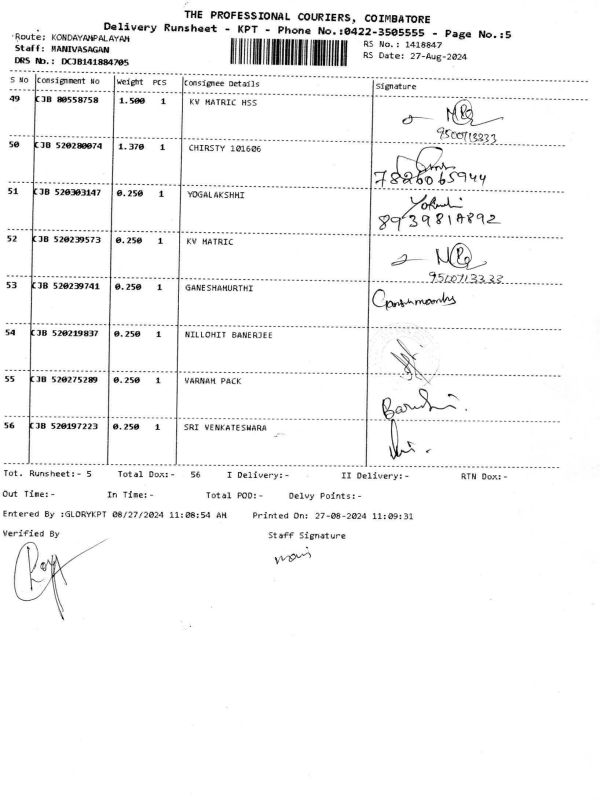 THE PROFESSIONAL COURIERS, COIMBATORE
Delivery Runsheet - KPT - Phone No.:0422-3505555 - Page No.:5
Route: KONDAYAMPALAYAM
Staff: MANIVASAGAN
DRS No.: DCJB141884705
RS No.: 1418847
RS Date: 27-Aug-2024
S No Consignment No Weight PCS Consignee Details Signature
49 CJB 80558758 1.500 1 KV MATRIC HSS
9500713333
50 CJB 520280074 1.370 1 CHIRSTY 101606
7826065944
51 CJB 520303147 0.250 1 YOGALAKSHHI
52 CJB 520239573 0.250 1 KV MATRIC
9500713333
53 CJB 520239741 0.250 1 GANESHAMURTHI
54 CJB 520219837 0.250 1 NILLOHIT BANERJEE
55 CJB 520275289 0.250 1 VARNAM PACK
56 CJB 520197223 0.250 1 SRI VENKATESWARA
Tot. Runsheet:- 5 Total Dox:- 56 I Delivery:- II Delivery:- RTN Dox:-
Out Time:- In Time:- Total POD:- Delvy Points:-
Entered By :GLORYKPT 08/27/2024 11:08:54 AM Printed On: 27-08-2024 11:09:31
Verified By Staff Signature
mani